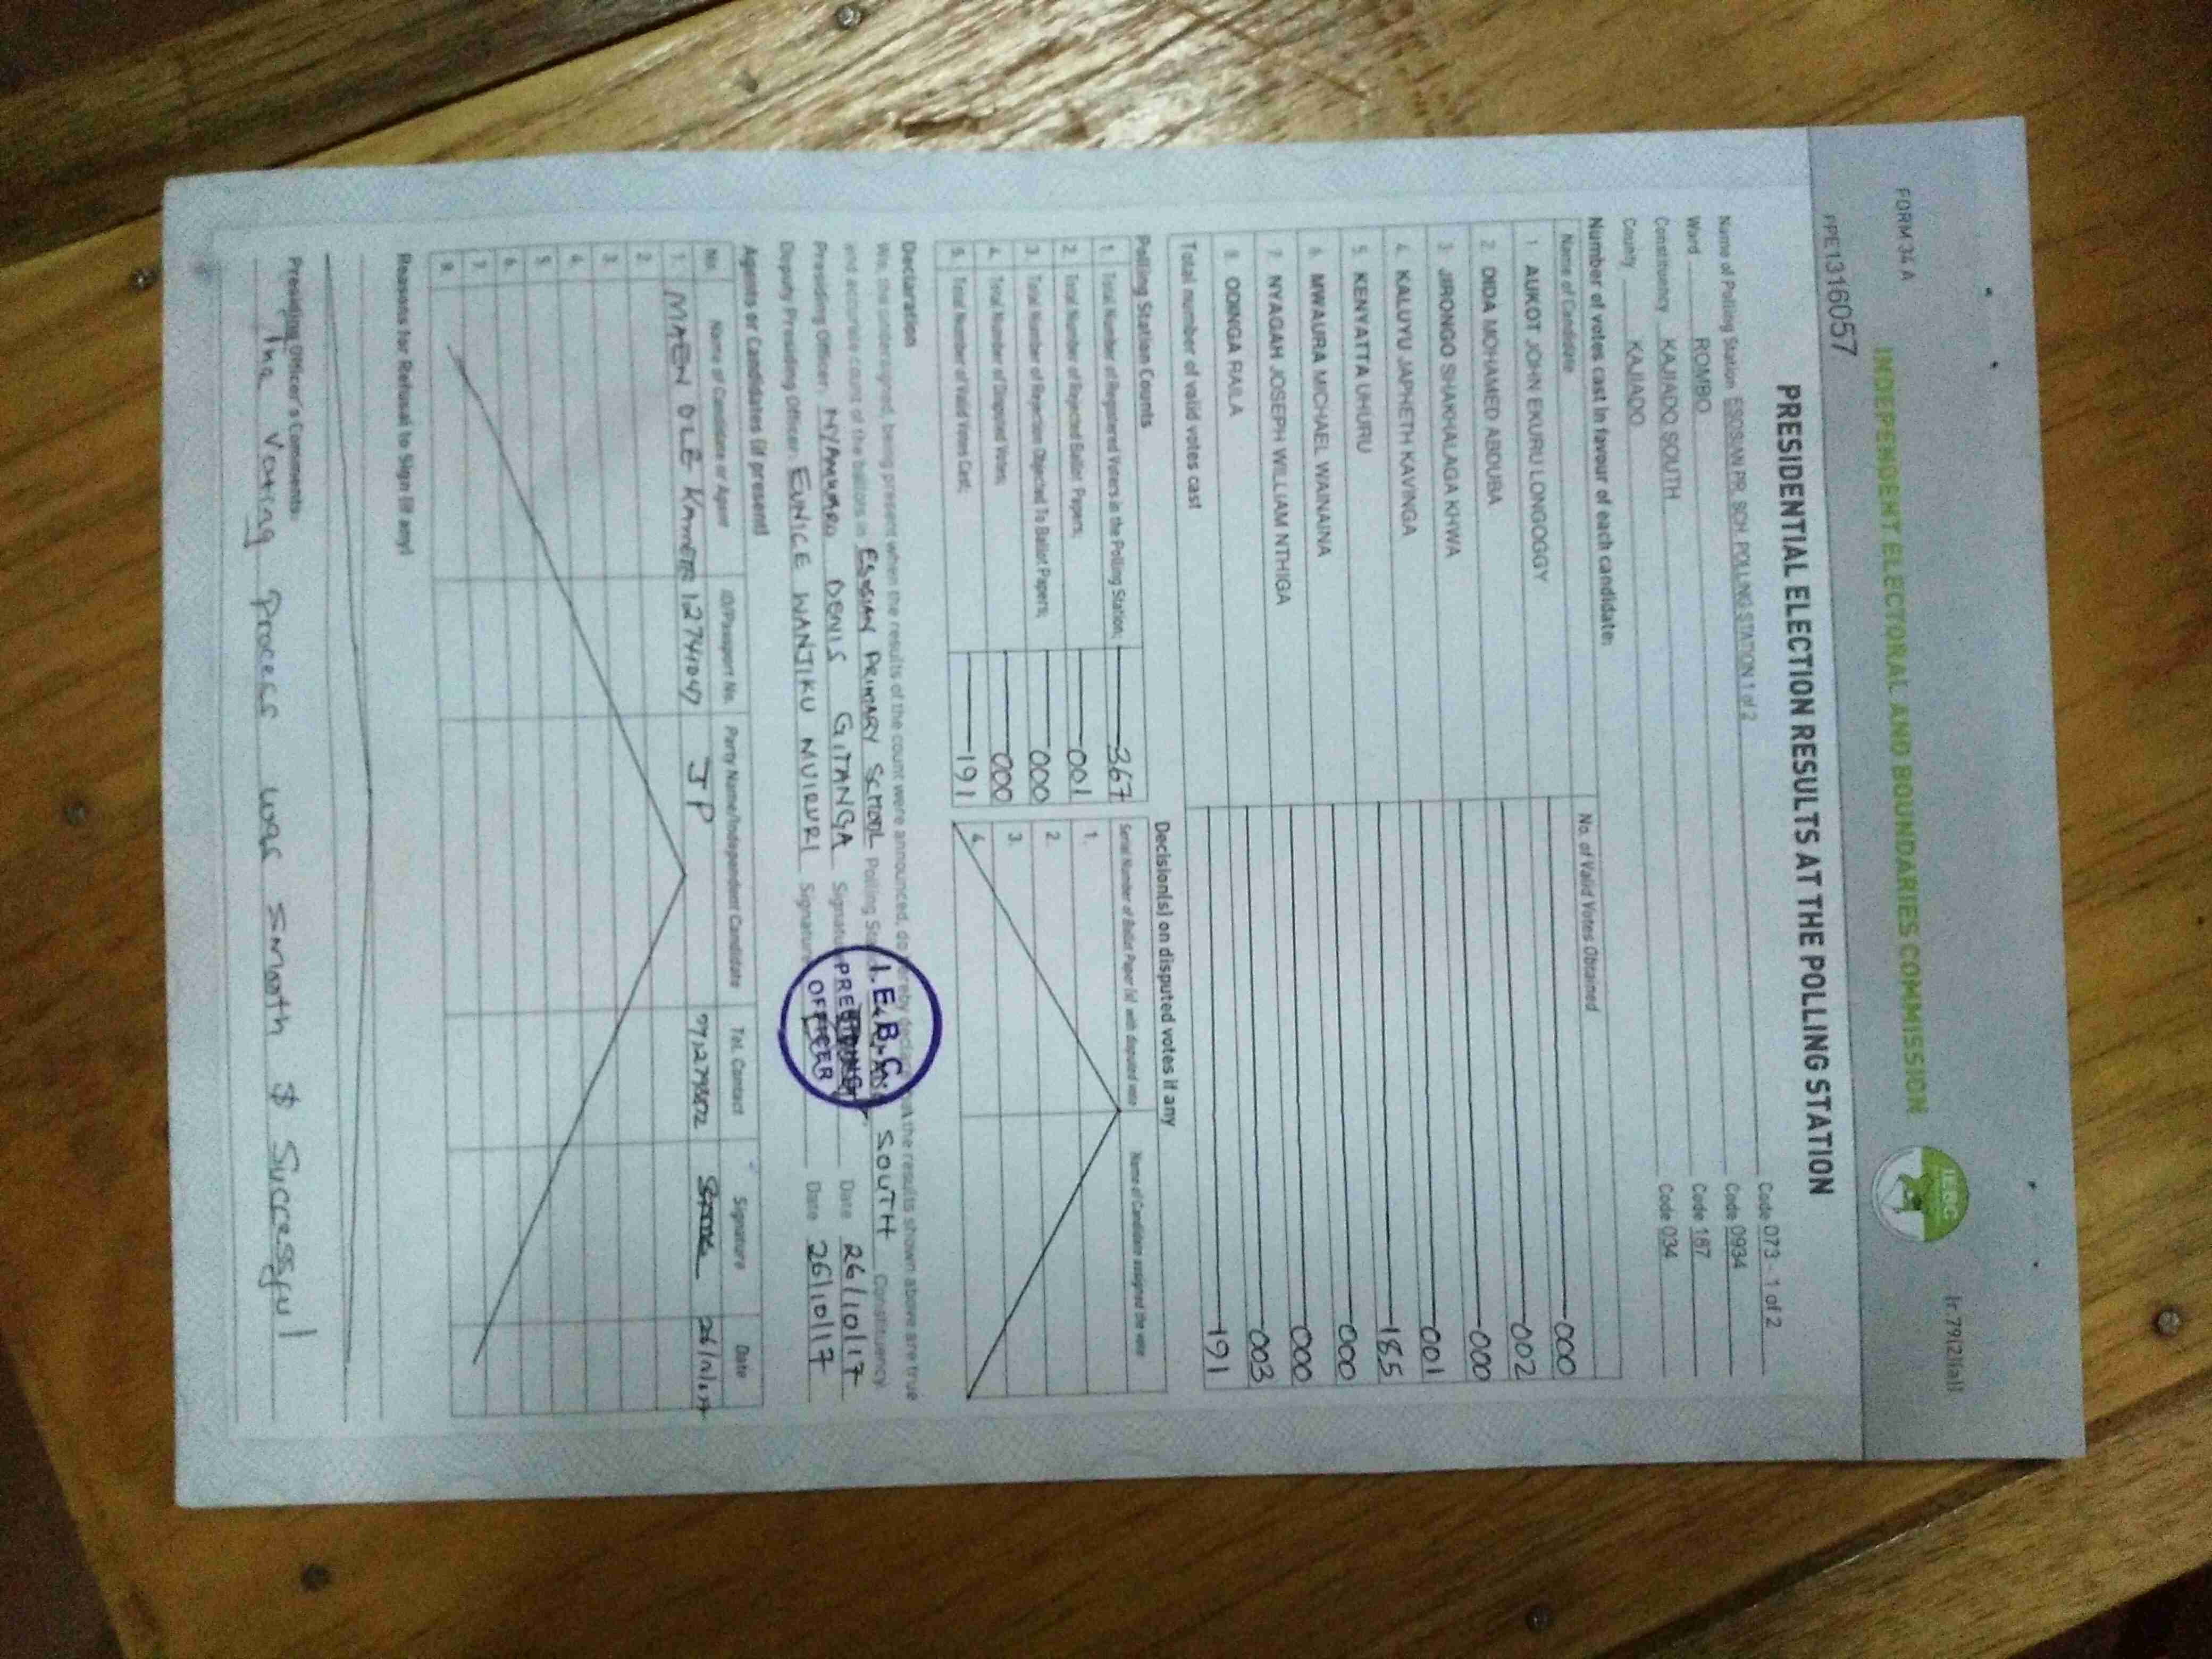 FORM 34 A
(r.79(2)(a))
INDEPENDENT ELECTORAL AND BOUNDARIES COMMISSION
IEBC
PPE1316057
PRESIDENTIAL ELECTION RESULTS AT THE POLLING STATION
Name of Polling Station ESOSIAN PR. SCH. POLLING STATION 1 of 2 Code 073 - 1 of 2
Ward ROMBO Code 0934
Constituency KAJIADO SOUTH Code 187
County KAJIADO Code 034
Number of votes cast in favour of each candidate:
Name of Candidate No. of Valid Votes Obtained
1 AUKOT JOHN EKURU LONGOGGY 000
2 DIDA MOHAMED ABDUBA 002
3 JIRONGO SHAKHALAGA KHWA 000
4 KALUYU JAPHETH KAVINGA 001
5 KENYATTA UHURU 185
6 MWAURA MICHAEL WAINAINA 000
7 NYAGAH JOSEPH WILLIAM NTHIGA 000
8 ODINGA RAILA 003
Total number of valid votes cast 191
Polling Station Counts
1. Total Number of Registered Voters in the Polling Station; 367
2. Total Number of Rejected Ballot Papers; 001
3. Total Number of Rejection Objected To Ballot Papers; 000
4. Total Number of Disputed Votes; 000
5. Total Number of Valid Votes Cast; 191
Decision(s) on disputed votes if any
Serial Number of Ballot Paper (s) with disputed vote Name of Candidate assigned the vote
1.
2.
3.
4.
Declaration
We, the undersigned, being present when the results of the count were announced, do hereby declare that the results shown above are true
and accurate count of the ballots in ESOSIAN PRIMARY SCHOOL Polling SOUTH Constituency
Presiding Officer: DENIS GITANGA Signature Date 26/10/17
Deputy Presiding Officer: EUNICE WANJIKU MUIRURI Signature Date 26/10/17
I.E.B.C
PRESIDING
OFFICER
Agents or Candidates (if present)
No. Name of Candidate or Agent ID/Passport No. Party Name/Independent Candidate Tel. Contact Signature Date
1. OLE 12741047 JP
2.
3.
4.
5.
6.
7.
8.
Reasons for Refusal to Sign (if any)
Presiding Officer's Comments:
The Voting Process was smooth $ Successful